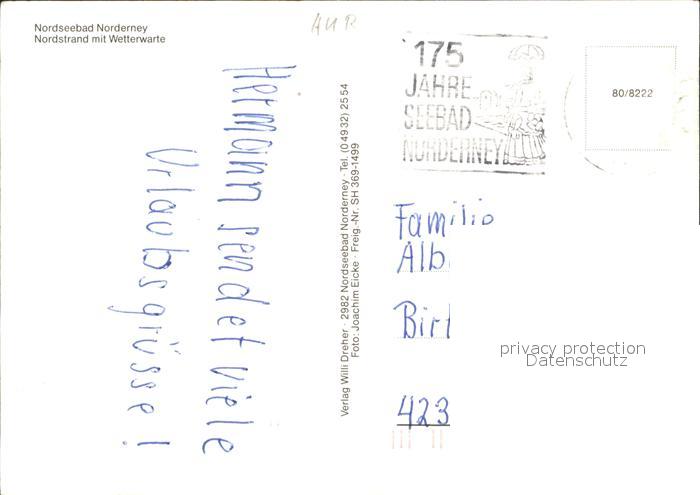 Nordseebad Norderney
Nordstrand mit Wetterwarte
AUR
Hermann sendet viele
Urlaubsgrüsse!
Verlag Willi Dreher · 2982 Nordseebad Norderney · Tel. (04932) 2554
Foto: Joachim Eicke · Freig.-Nr. SH 369-1499
175
JAHRE
SEEBAD
NORDERNEY
80/8222
Familie
Alb
Birl
423
privacy protection
Datenschutz